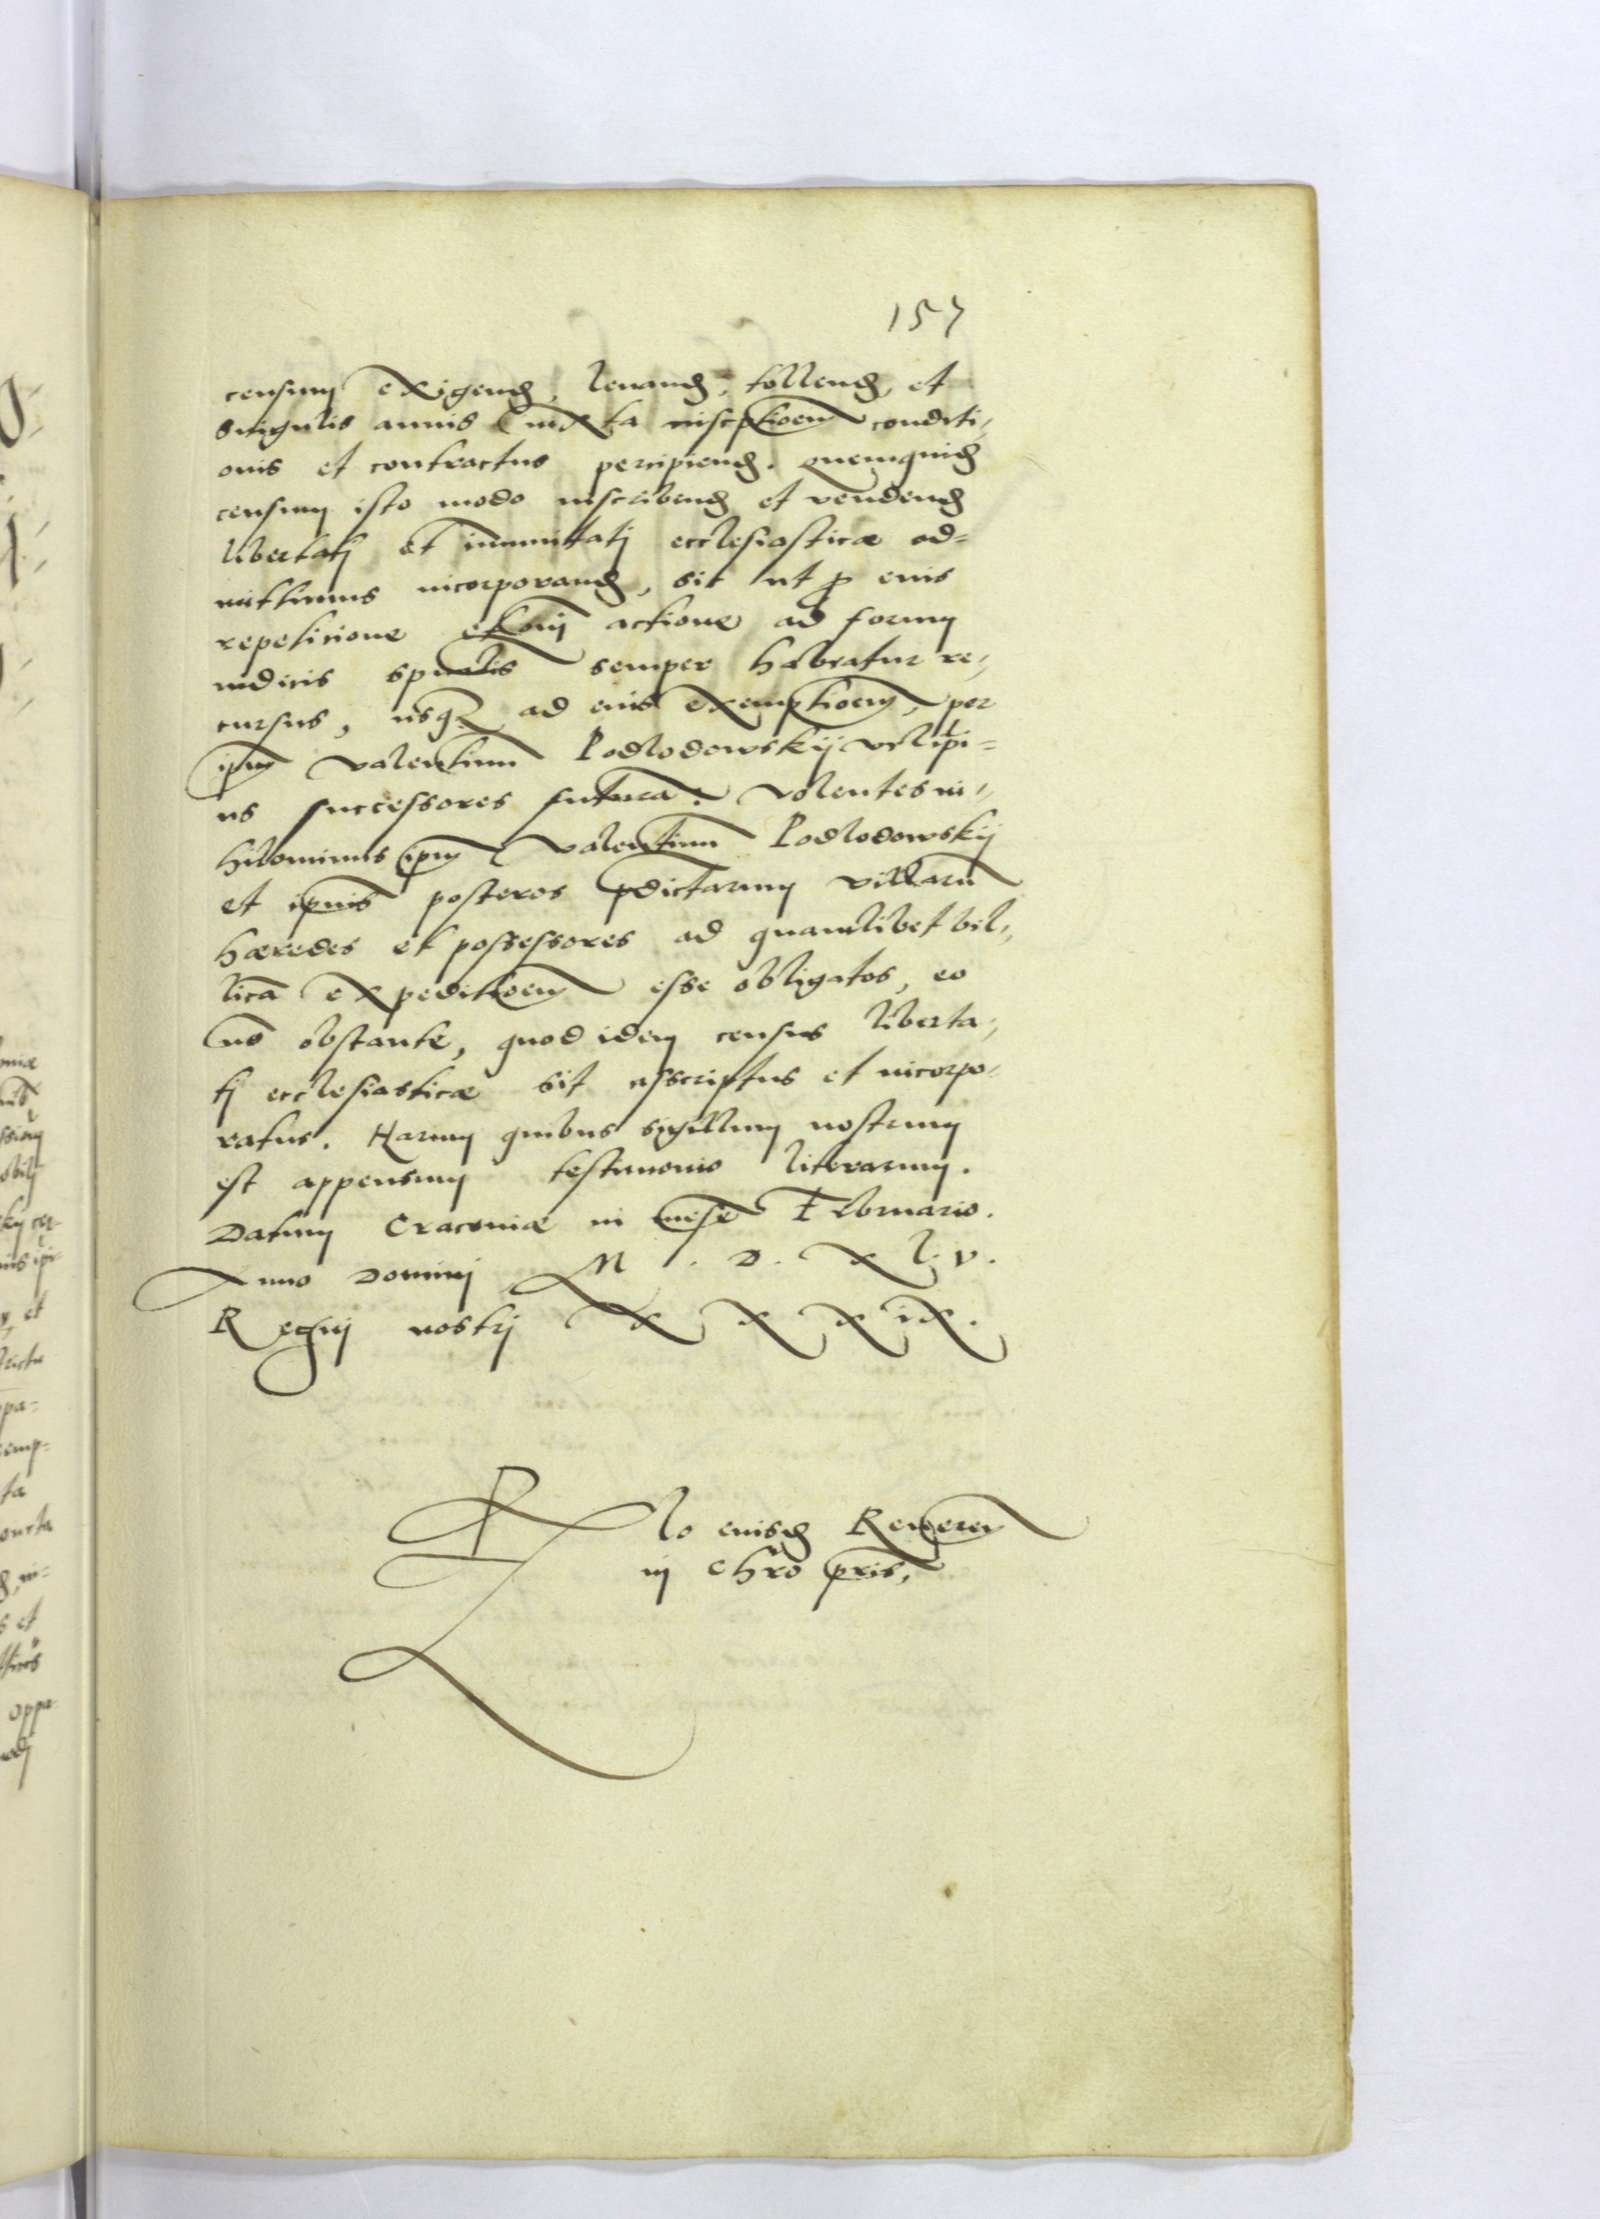 157
censum exigend, leuand, tollend, et
singulis annis iuxta inscptioem conditi-
onis et contractus percipiend. Quemquid
censum isto modo inscribend et vendend
libertati et immunitati ecclesiasticæ ad=
mittimus incorporand, sic ut p eius
repeticione actione ad forum
iudicis spualis semper habeatur re-
cursus, usq ad eius exemptioem, per
ipm Valentinum Podlodowskij vel ipi=
us successores futura: Volentes ni-
hilominus ipm Valentinum Podlodowskij
et ipius posteros pdictarum villarum
hæredes et possessores ad quamlibet bel-
licã expeditioem esse obligatos, eo
nõ obstante, quod idem census liberta-
ti ecclesiasticæ sit asscriptus et incorpo-
ratus. Harum quibus sigillum nostrum
est appensum testimonio literarum.
Datum Cracouiæ in mense Februario.
Anno Domini M. D. X L. V.
Regni nostri X X X I X.
Rlo eiusd Reueren
in Chro pris,